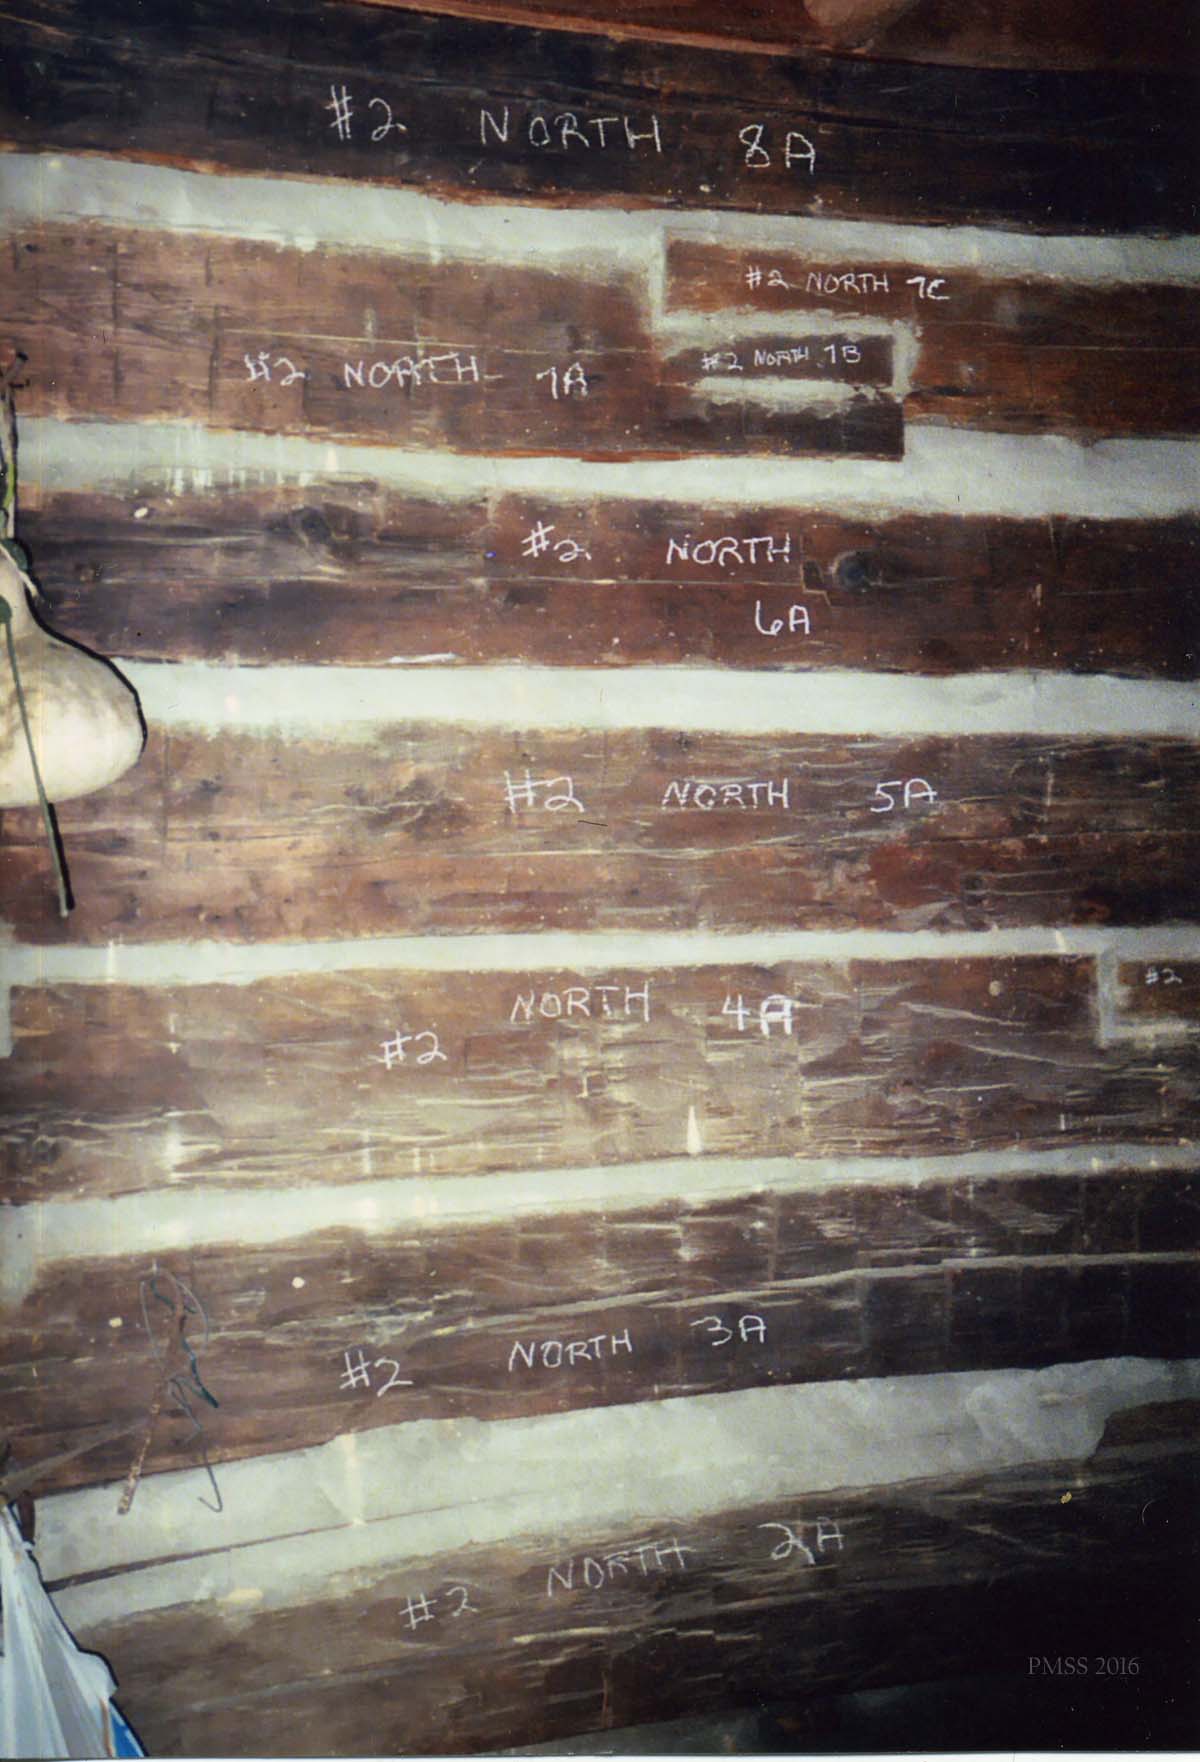 #2 NORTH 8A
#2 NORTH 7C
#2 NORTH 7B
#2 NORTH 7A
#2 NORTH
6A
#2 NORTH 5A
#2
#2 NORTH 4A
#2 NORTH 3A
#2 NORTH 2A
PMSS 2016